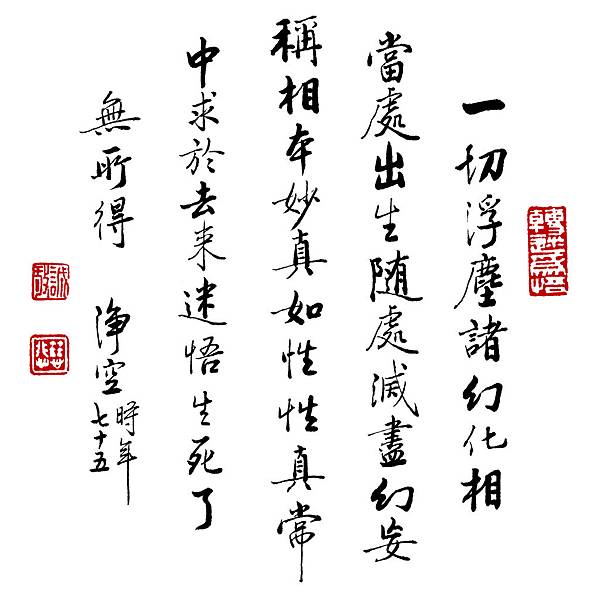 轉迷為悟
一切浮塵諸幻化相
當處出生随處滅盡幻妄
稱相本妙真如性性真常
中求於去来迷悟生死了
無所得 淨空 時年七十五
誠敬